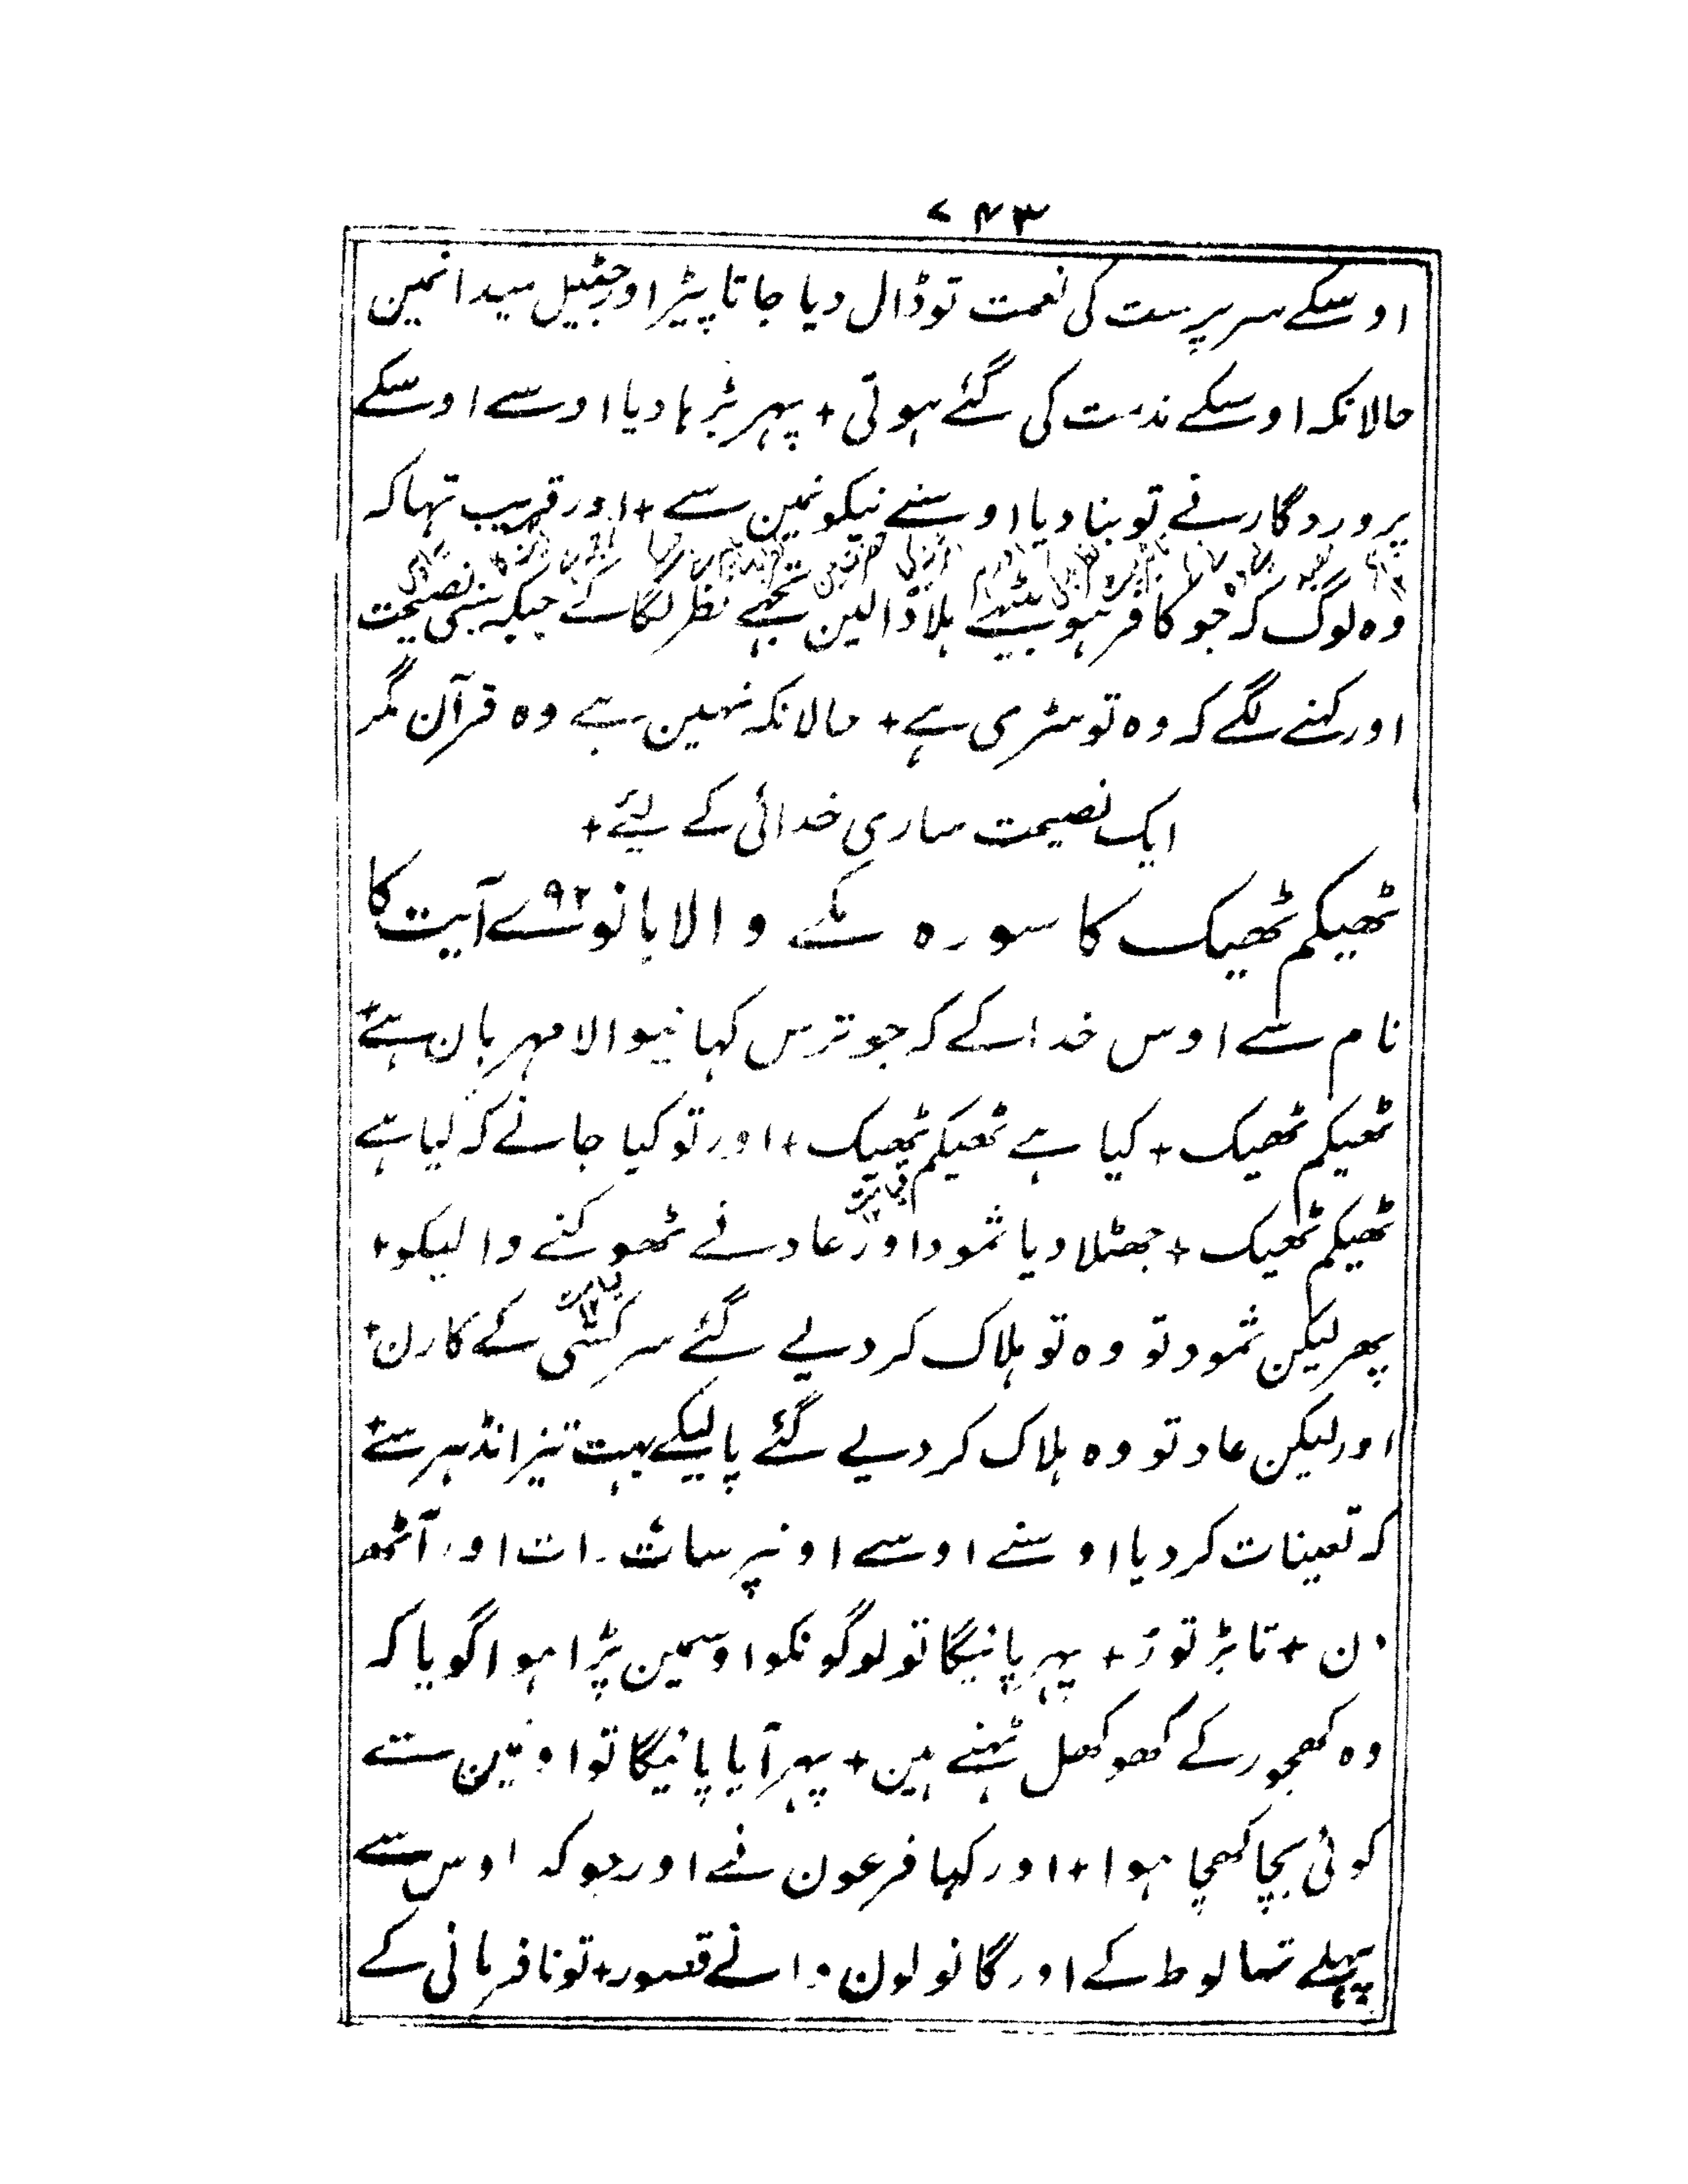 ۷۴۳
اوسکے سرپرست کی نعمت تو ڈال دیا جاتا پیٹر اوجٹیل میدانمین
حالانکہ اوسکے مذمت کی گئے ہوتی + پہر بڑہا دیا اوسے اوسکے
پروردگارنے تو بنا دیا اوسنے نیکونمین سے + اور قریب تہا کہ
وہ لوگ کہ جو کافر ہو بیٹھے ہلا ڈالین تجہے نظر لگا کے جبکہ سنی نصیحت
اور کہنے لگے کہ وہ تو سڑی ہے + حالانکہ نہین ہے وہ قرآن مگر
ایک نصیحت ساری خدائی کے لیئے +
ٹھیکم ٹھیک کا سورہ مکے والا بانوے ۹۲ آیت کا
نام سے اوس خدا کے کہ جو ترس کہانیوالا مہربان ہے +
ٹھیکم ٹھیک + کیا ہے ٹھیکم ٹھیک + اور تو کیا جانے کہ کیا ہے
ٹھیکم ٹھیک + جھٹلا دیا ثمود اور عاد نے ٹھوکنے والیکو +
پھر لیکن ثمود تو وہ تو ہلاک کر دیے گئے سرکشی کے کارن +
اور لیکن عاد تو وہ ہلاک کر دیے گئے پالیکے بہت تیز انڈہر سے +
کہ تعینات کر دیا اوسنے اوسے اونپر سات رات اور آٹھ
دن + تابڑ توڑ + پہر پائیگا تو لوگونکو اوسمین پڑا ہوا گویا کہ
وہ کھجور کے کھوکھل ٹہنے ہین + پہر آیا پائیگا تو اونمین سے
کوئی بچا کھچا ہوا + اور کہا فرعون نے اور جو کہ اوس سے
پہلے تہا لوط کے اور گانولون دانے قصور + تو نافرمانی کے